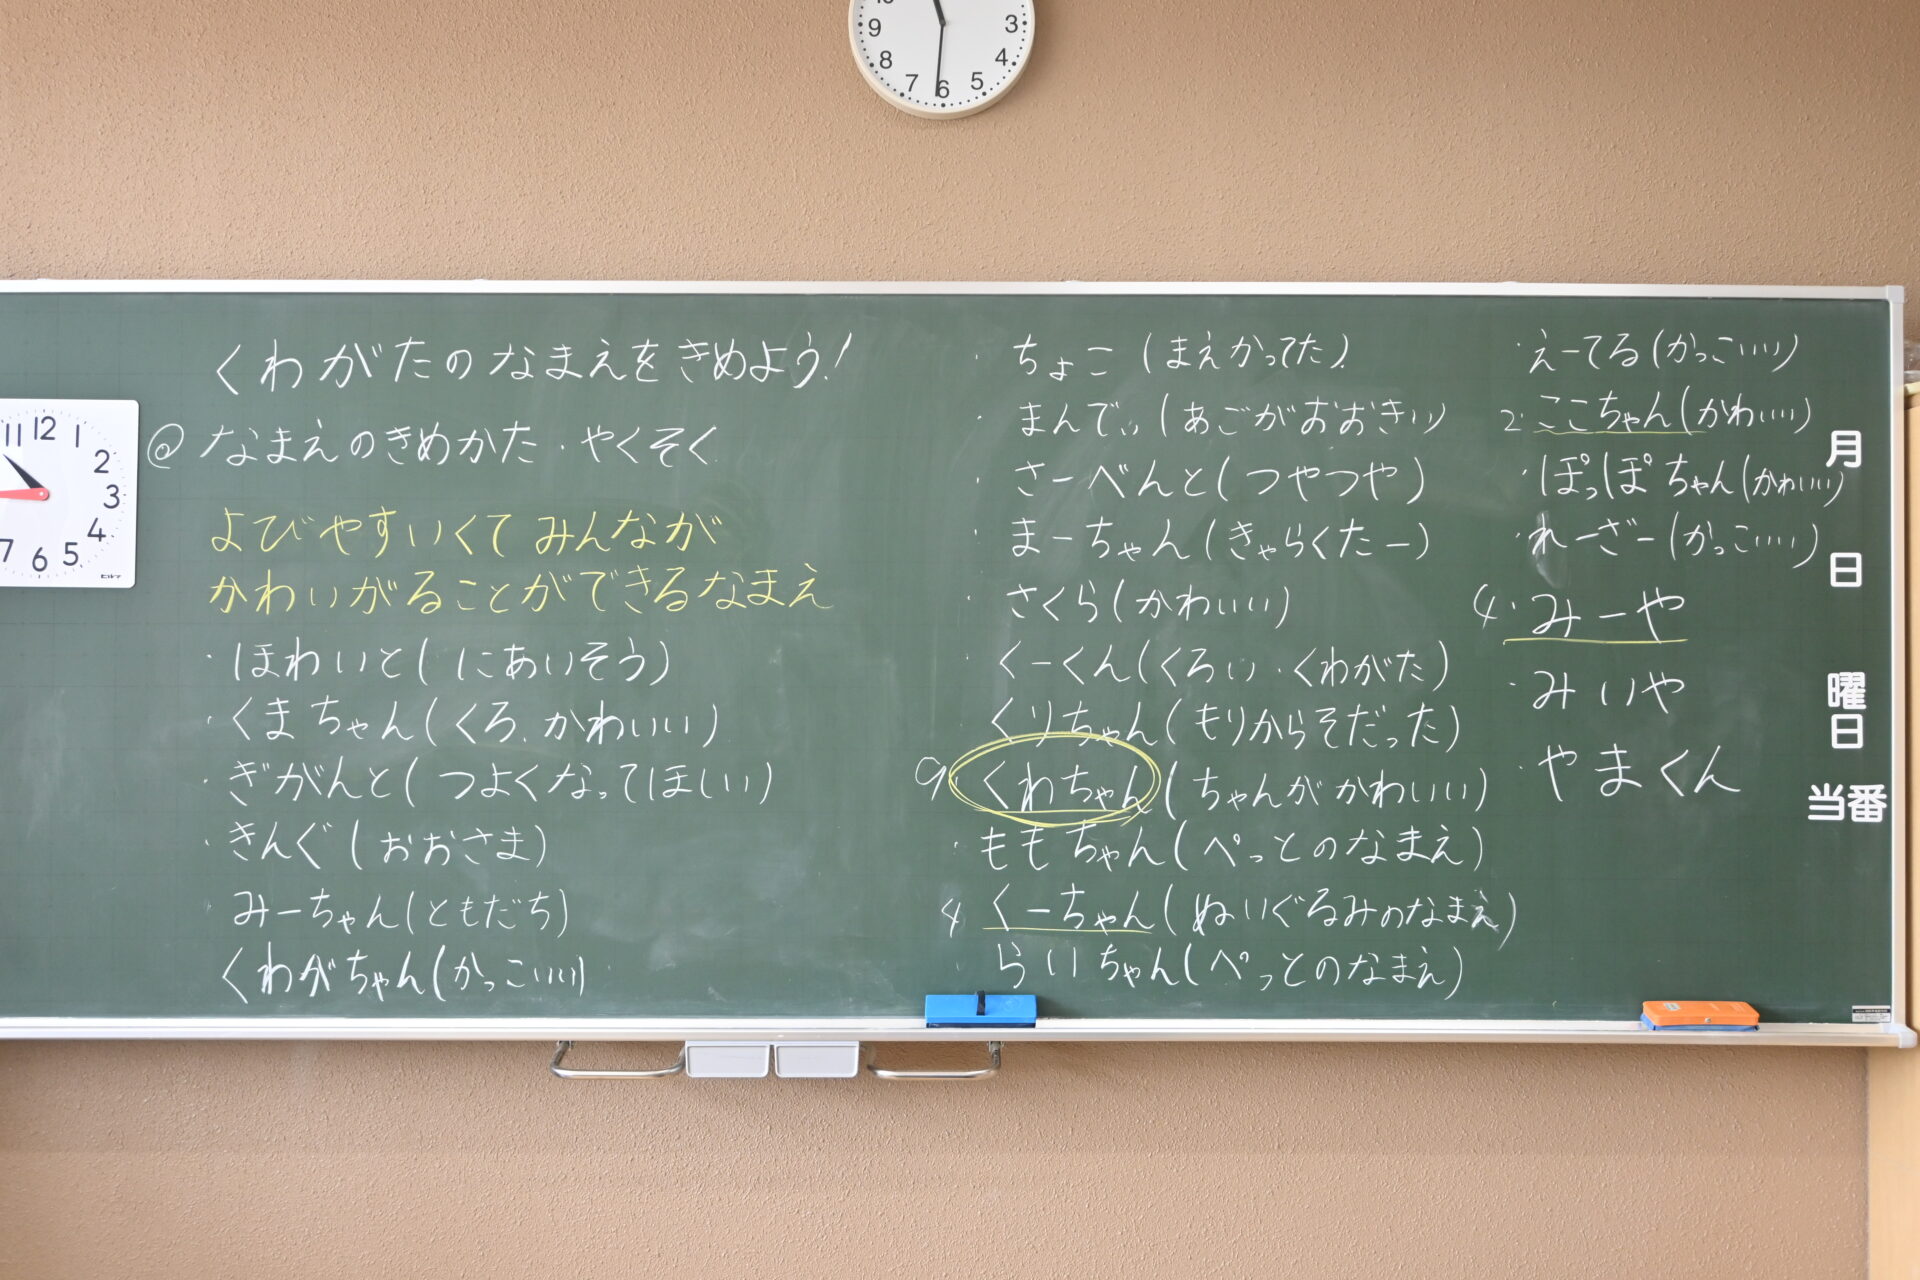 くわがたのなまえをきめよう!
◎なまえのきめかた・やくそく
よびやすいくてみんなが
かわいがることができるなまえ
・ほわいと(にあいそう)
・くまちゃん(くろ、かわいい)
・ぎがんと(つよくなってほしい)
・きんぐ(おおさま)
・みーちゃん(ともだち)
くわがちゃん(かっこいい)
・ちょこ(まえかってた)
・まんでぃ(あごがおおきい)
・さーべんと(つやつや)
・まーちゃん(きゃらくたー)
・さくら(かわいい)
・くーくん(くろい・くわがた)
くりちゃん(もりからそだった)
9 くわちゃん(ちゃんがかわいい)
・ももちゃん(ぺっとのなまえ)
4 くーちゃん(ぬいぐるみのなまえ)
・らいちゃん(ぺっとのなまえ)
・えーてる(かっこいい)
2・ここちゃん(かわいい)
・ぽっぽちゃん(かわいい)
・れーざー(かっこいい)
4・みーや
・みいや
・やまくん
月
日
曜日
当番
9
3
8
4
7
6
5
11
12
1
2
3
4
5
6
7